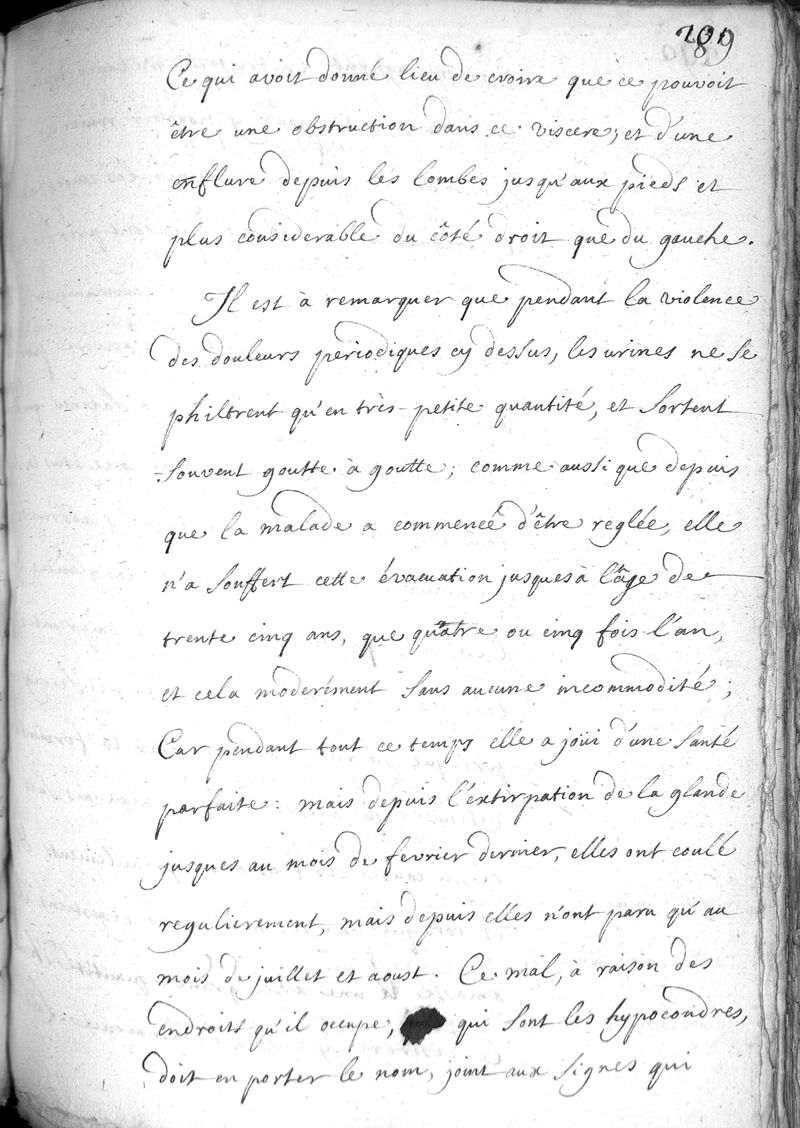 209
Ce qui avoit donné lieu de croire que ce pouvoit
être une obstruction dans ce viscere; et d'une
enflure depuis les lombes jusqu'aux pieds et
plus considerable du côté droit que du gauche.
Il est à remarquer que pendant la violence
des douleurs periodiques cy dessus, les urines ne se
philtrent qu'en très-petite quantité, et sortent
souvent goutte à goutte; comme aussi que depuis
que la malade a commencé d'être reglée, elle
n'a souffert cette évacuation jusques à l'âge de
trente cinq ans, que quatre ou cinq fois l'an,
et cela moderément sans aucune incommodité;
Car pendant tout ce temps elle a joüi d'une santé
parfaite: mais depuis l'extirpation de la glande
jusques au mois de fevrier dernier, elles ont coulé
regulierement, mais depuis elles n'ont paru qu'au
mois de juillet et aoust. Ce mal, à raison des
endroits qu'il occupe, qui sont les hypocondres,
doit en porter le nom, joint aux signes qui